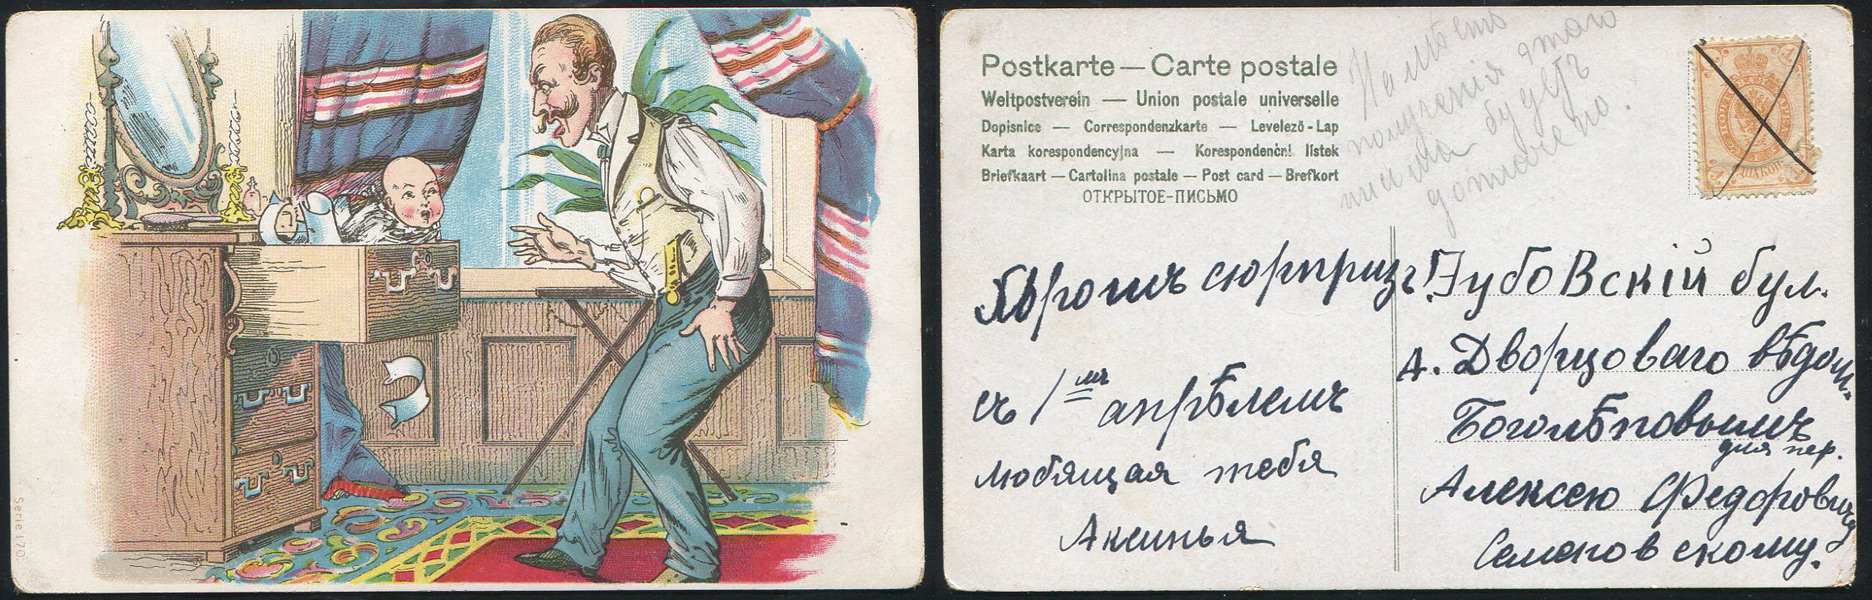 Serie 170
Postkarte — Carte postale
Weltpostverein — Union postale universelle
Dopisnice — Correspondenzkarte — Levelező-Lap
Karta korespondencyjna — Korespondenční lístek
Briefkaart — Cartolina postale — Post card — Brefkort
ОТКРЫТОЕ-ПИСЬМО
получения этаго
письма будет
Хорошъ сюрпризъ!
съ 1мъ апрѣлемъ
любящая тебя
Аксинья
Зубовскій бул.
д. Дворцоваго вѣдом.
Боголѣповымъ
для пер.
Алексею Федоровичу
Семеновскому.